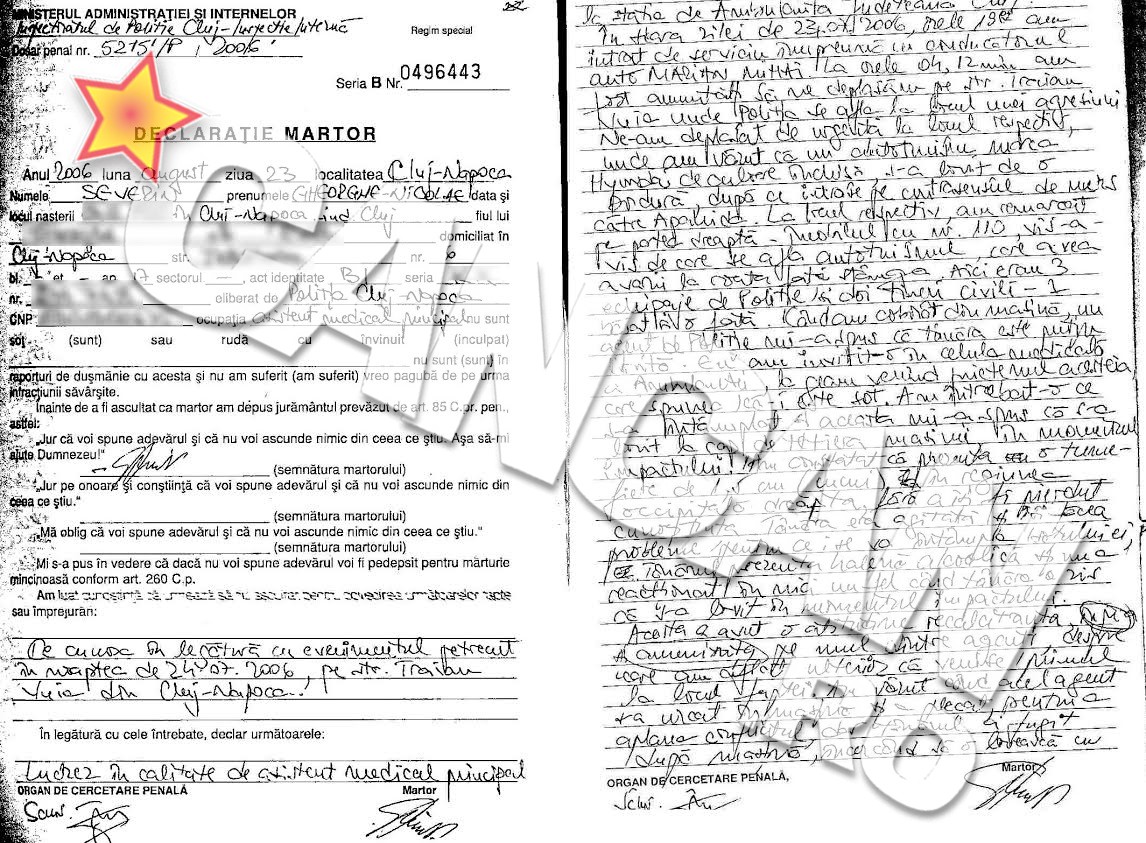 MINISTERUL ADMINISTRAŢIEI ŞI INTERNELOR
Inspectoratul de Politie Cluj-
Dosar penal nr. 5215/P/2006
Regim special
Seria B Nr. 0496443
DECLARAŢIE MARTOR
Anul 2006 luna august ziua 23 localitatea Cluj-Napoca
Numele SEVERIN prenumele GHEORGHE-NICOLAE data şi
locul nasterii în Cluj-Napoca jud. Cluj fiul lui
domiciliat în
Cluj-Napoca str. nr.
bl. et - ap 17 sectorul - , act identitate BI seria
nr. eliberat de Politia Cluj-Napoca
CNP ocupaţia asistent medical principal nu sunt
soţ (sunt) sau rudă cu învinuit (inculpat)
nu sunt (sunt) în
raporturi de duşmănie cu acesta şi nu am suferit (am suferit) vreo pagubă de pe urma
infracţiunii săvârşite.
Înainte de a fi ascultat ca martor am depus jurământul prevăzut de art. 85 C.pr. pen.,
astfel:
„Jur că voi spune adevărul şi că nu voi ascunde nimic din ceea ce ştiu. Aşa să-mi
ajute Dumnezeu!“
(semnătura martorului)
„Jur pe onoare şi conştiinţă că voi spune adevărul şi că nu voi ascunde nimic din
ceea ce ştiu.“
(semnătura martorului)
„Mă oblig că voi spune adevărul şi că nu voi ascunde nimic din ceea ce ştiu.“
(semnătura martorului)
Mi s-a pus în vedere că dacă nu voi spune adevărul voi fi pedepsit pentru mărturie
mincinoasă conform art. 260 C.p.
Am luat cunoştinţă că urmează să fiu ascultat pentru dovedirea următoarelor fapte
sau împrejurări:
Ce cunosc în legătură cu evenimentul petrecut
în noaptea de 24.07.2006, pe str. Traian
Vuia din Cluj-Napoca.
În legătură cu cele întrebate, declar următoarele:
Lucrez în calitate de asistent medical principal
ORGAN DE CERCETARE PENALĂ
Martor
la statia de Ambulanta Judeteana Cluj.
În seara zilei de 23.07.2006, orele 19 am
intrat de serviciu împreună cu conducătorul
auto MARIAN MIHAI. La orele 04,12 min am
fost anuntati să ne deplasăm pe str. Traian
Vuia unde Politia se afla la locul unei agresiuni
Ne-am deplasat de urgentă la locul respectiv,
unde am văzut că un autoturism marca
Hyundai de culoare închisă s-a lovit de o
bordură, după ce intrase pe contrasensul de mers
către Apahida. La locul respectiv, am remarcat
pe partea dreaptă - imobilul cu nr. 110, vis-a
vis de care se afla autoturismul care avea
avarii la roata fată stânga. Aici erau 3
echipaje de Politie si doi tineri civili - 1
băiat si o fată. Când am coborât din masină, un
agent de Politie mi-a spus că tânăra este putin
am invitat-o în celula medicală
a Ambulantei, la geam venind prietenul acesteia
care spunea că îi este sot. Am întrebat-o ce
s-a întâmplat si aceasta mi-a spus că s-a
lovit la cap de tetiera masinii, în momentul
impactului. Am constatat că prezenta o tume-
fiere de în regiunea
occipitală dreaptă, fără a-si fi pierdut
cunostinta. Tânăra era agitată si îsi făcea
probleme pentru ce i se va întâmpla
Tânărul prezenta halenă alcoolică si nu a
reactionat în nici un fel când tânăra a zis
că s-a lovit în momentul impactului.
Acesta a avut o atitudine recalcitrantă,
a amenintat pe unul dintre agenti despre
care am aflat ulterior că venise primul
la locul faptei. Am văzut când acel agent
s-a urcat în masină si a plecat, pentru a
aplana conflictul, dar tânărul a fugit
după masină, încercând să o lovească cu
ORGAN DE CERCETARE PENALĂ,
Martor
CANCAN.ro